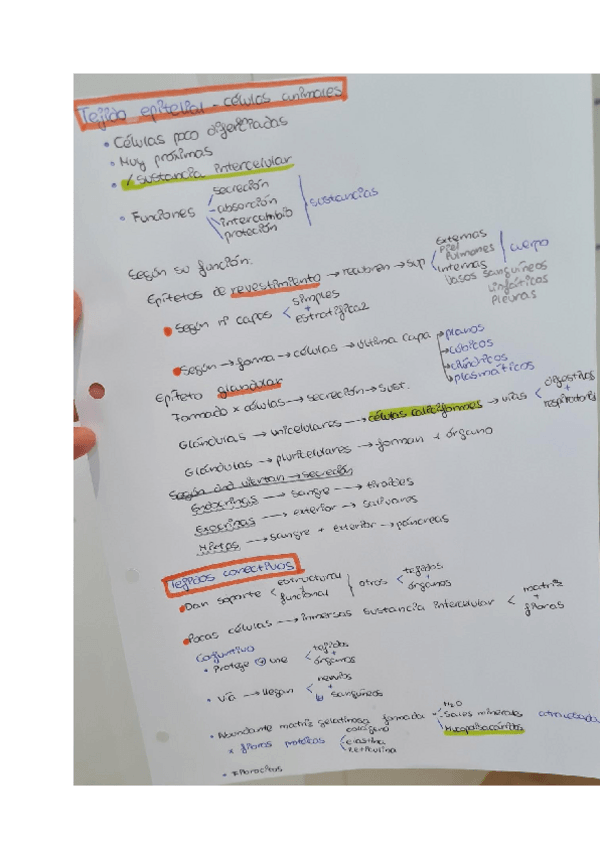 Tejido epitelial - células animales
• Células poco diferenciadas
• Muy próximas
• / sustancia intercelular
secreción
absorción
• Funciones intercambio sustancias
proteción
Según su función:
Externas
Piel
Pulmones
Epitetos de revestimiento → recubren → sup Internas cuerpo
Vasos sanguíneos
Linfáticos
Pleuras
simples
• Según nº capas +
estratificaz
• Según → forma → células → última capa → planos
→ cúbicos
→ cilíndricos
→ plasmáticos
Epiteto glandular
Formado x células → secreción → sust.
Glándulas → unicelulares → células caliciformes → vías digestivas + respiratorias
Glándulas → pluricelulares → forman x órgano
Según dnd viertan → secreción
Endocrinas → sangre → tiroides
Exocrinas → exterior → salivares
Mixtas → sangre + exterior → páncreas
Tejidos conectivos
• Dan soporte estructural + funcional otros tejidos + órganos
• Pocas células → inmersas sustancia intercelular matriz + fibras
Conjuntivo
• Protege y une tejidos + órganos
• Vía → llegan nervios + sanguíneos
H₂O
• Abundante matriz gelatinosa formada Sales minerales
Mucopolisacáridos
x fibras proteicas colágeno
elastina
reticulina
• Fibrocitos